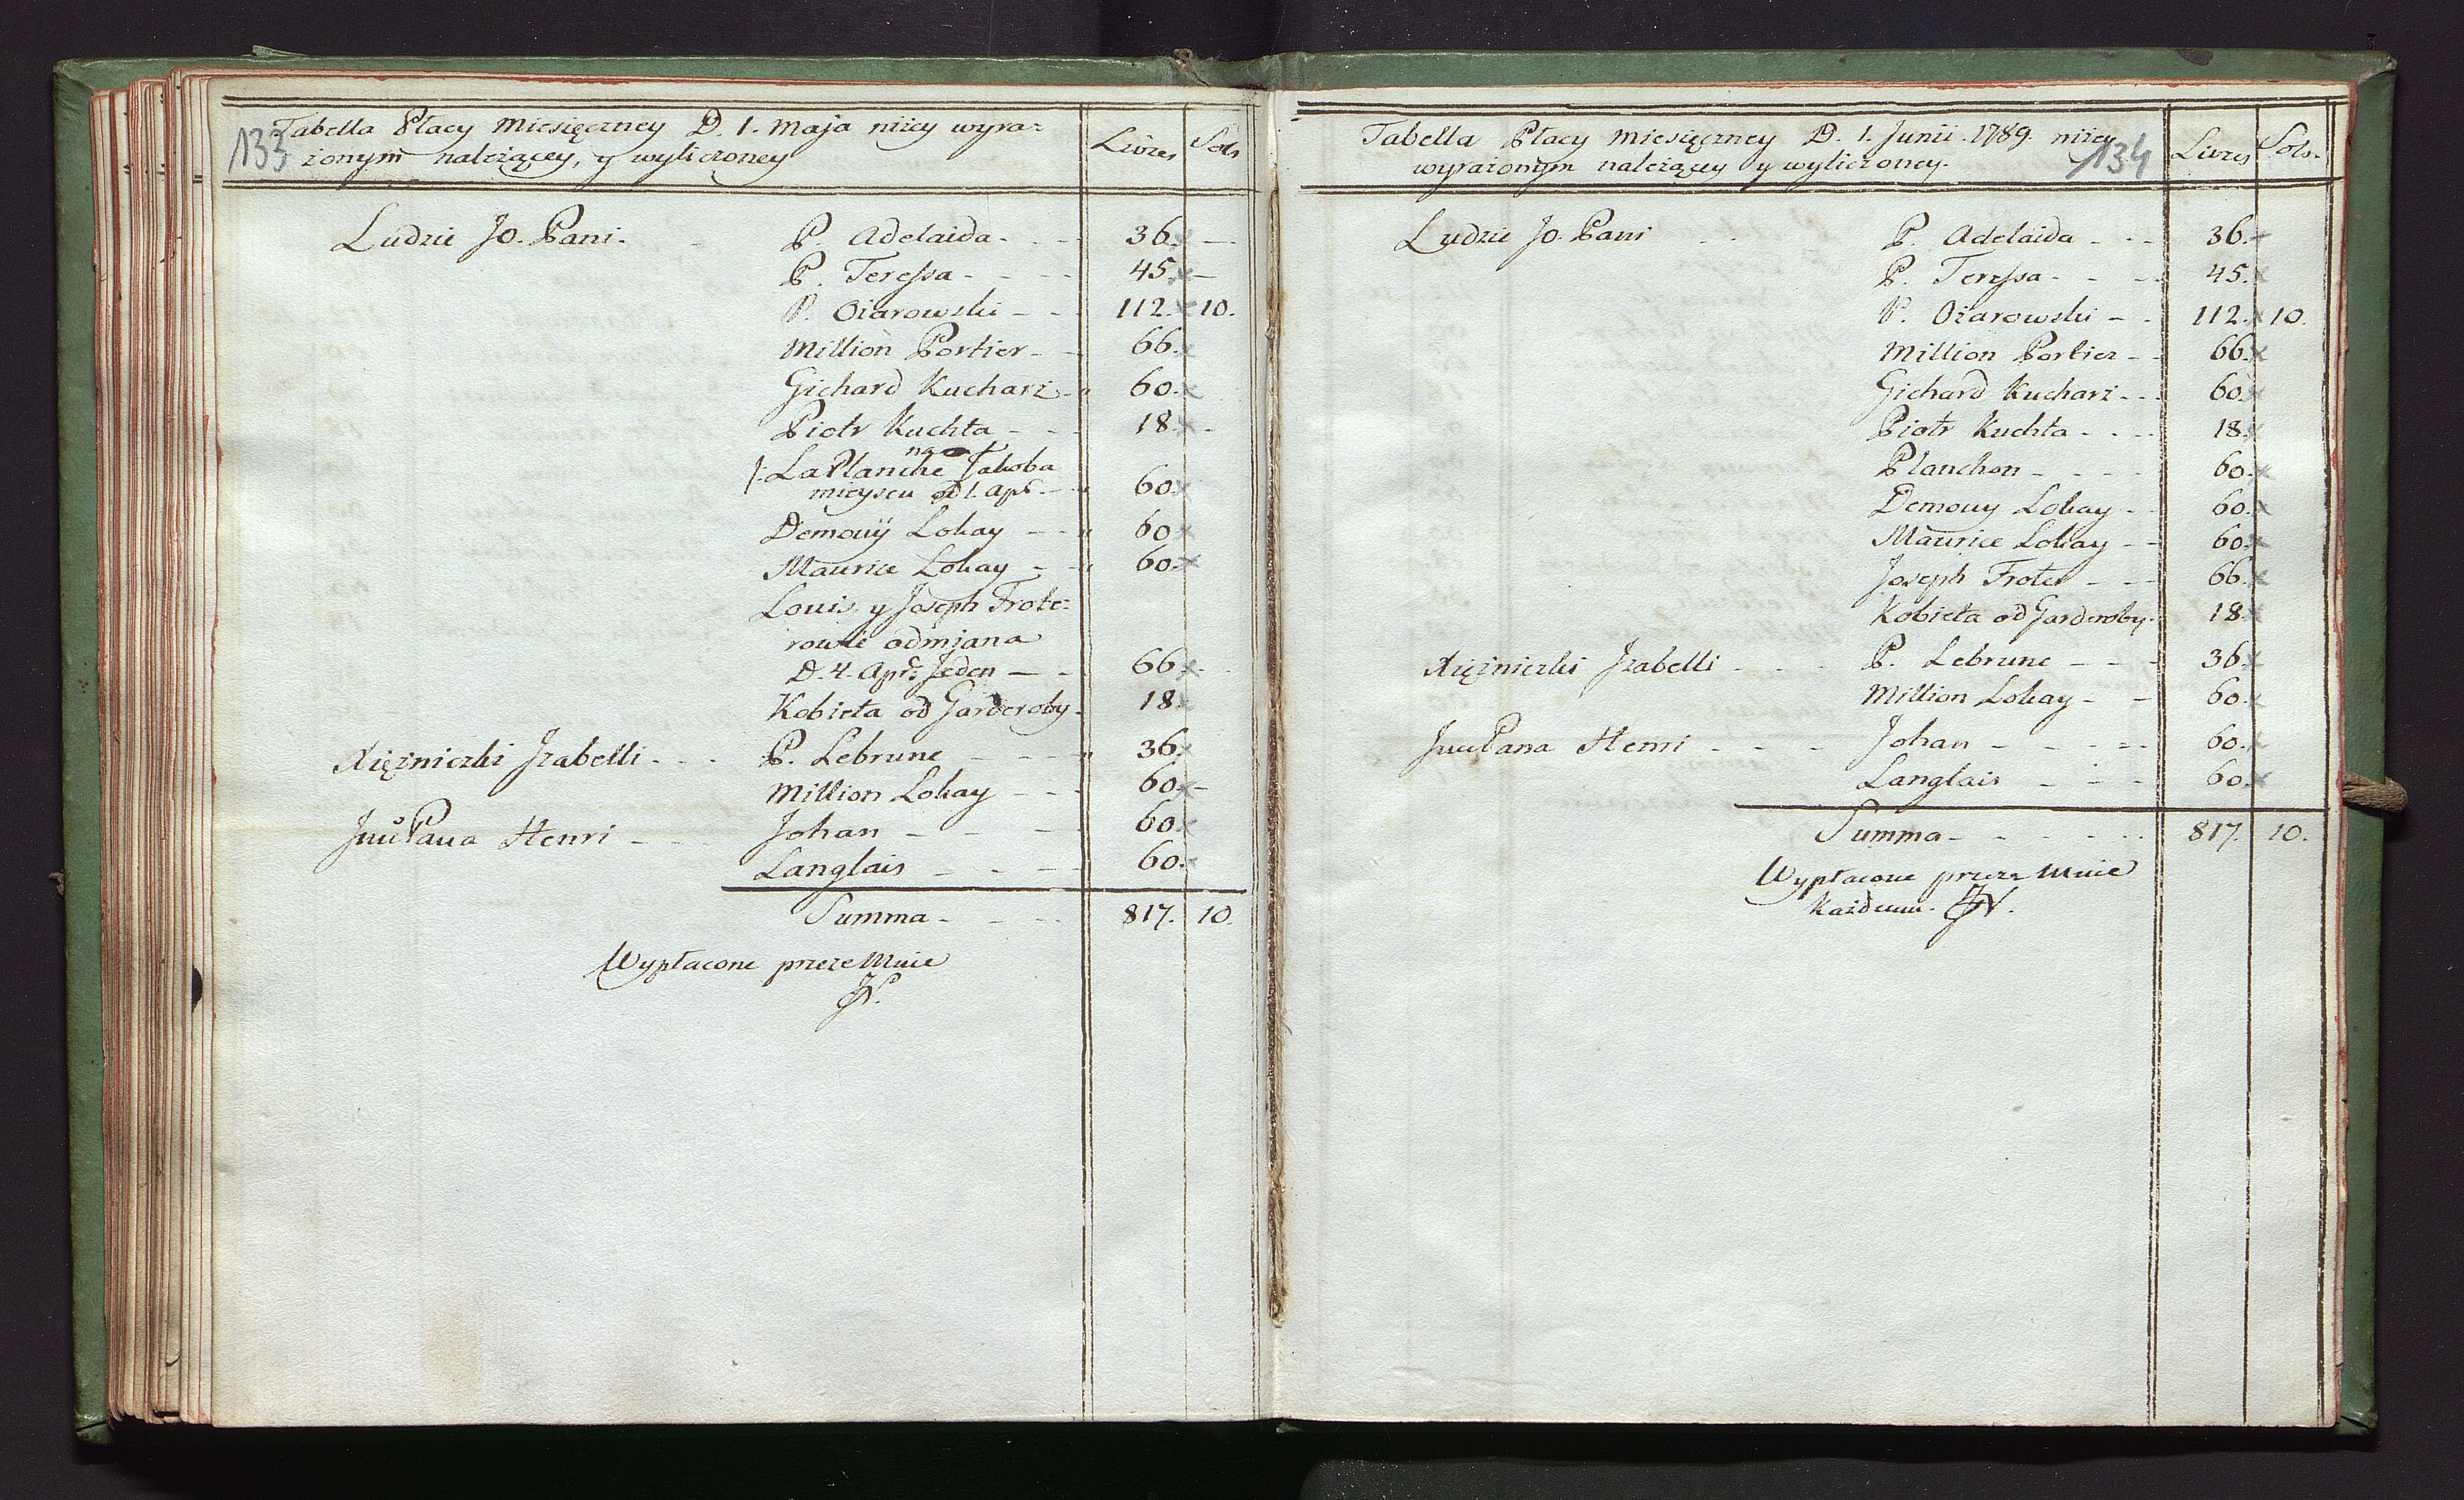 133
Tabella Płacy Miesięczney D. 1. Maja niżey wyra=
żonym należącey, y wyliczoney
Livres Sols
Ludzie Jo. Pani. P. Adelaida 36. —
P. Teressa 45. —
P. Ożarowski 112. 10.
Million Portier 66.
Gichard Kucharz 60.
Piotr Kuchta 18.
na
LaPlanche Jakoba
mieyscu od 1. Apr. 60.
Demouÿ Lokay 60.
Maurice Lokay 60.
Louis y Joseph Frote=
rowie odmiana
D. 4. Apr. Jeden 66.
Kobieta od Garderoby. 18.
Xiężniczki Jzabelli P. Lebrune 36.
Million Lokay 60. —
Pana Henri Johan 60.
Langlais 60.
Summa 817. 10.
Wypłacone przeze Mnie
134
Tabella Płacy Miesięczney D. 1. Junii. 1789. niżey
wyrażonym należącey y wyliczoney.
Livres Sols.
Ludzie Jo Pani P. Adelaida 36.
P. Teressa 45.
P. Ożarowski 112. 10.
Million Portier 66.
Gichard Kucharz 60.
Piotr Kuchta 18.
Planchon 60.
Demouy Lokay 60.
Maurice Lokay 60.
Joseph Froter 66.
Kobieta od Garderoby. 18.
Xiężniczki Jzabelli P. Lebrune 36.
Million Lokay 60.
Pana Henri Johan 60.
Langlais 60.
Summa 817. 10.
Wypłacone przez Mnie
Każdemu.